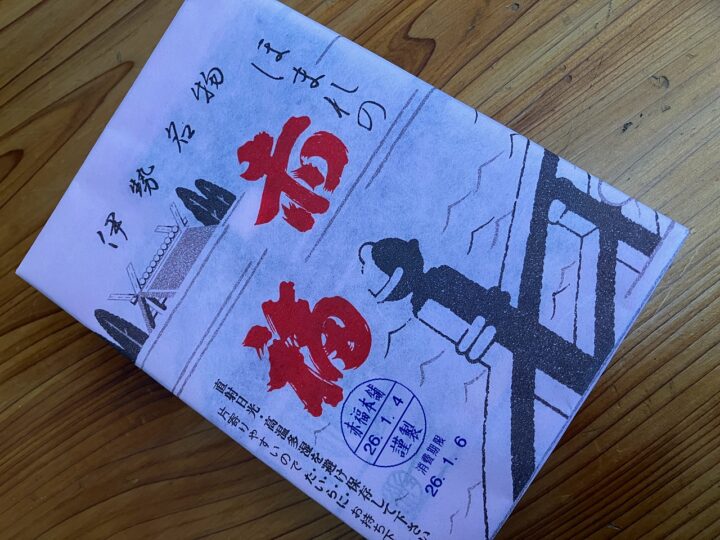 ほまれの
赤福
伊勢名物
赤福本舗
26.1.4
謹製
消費期限
26.1.6
直射日光・高温多湿を避け保存して下さい
片寄りやすいのでたいらにお持ち下